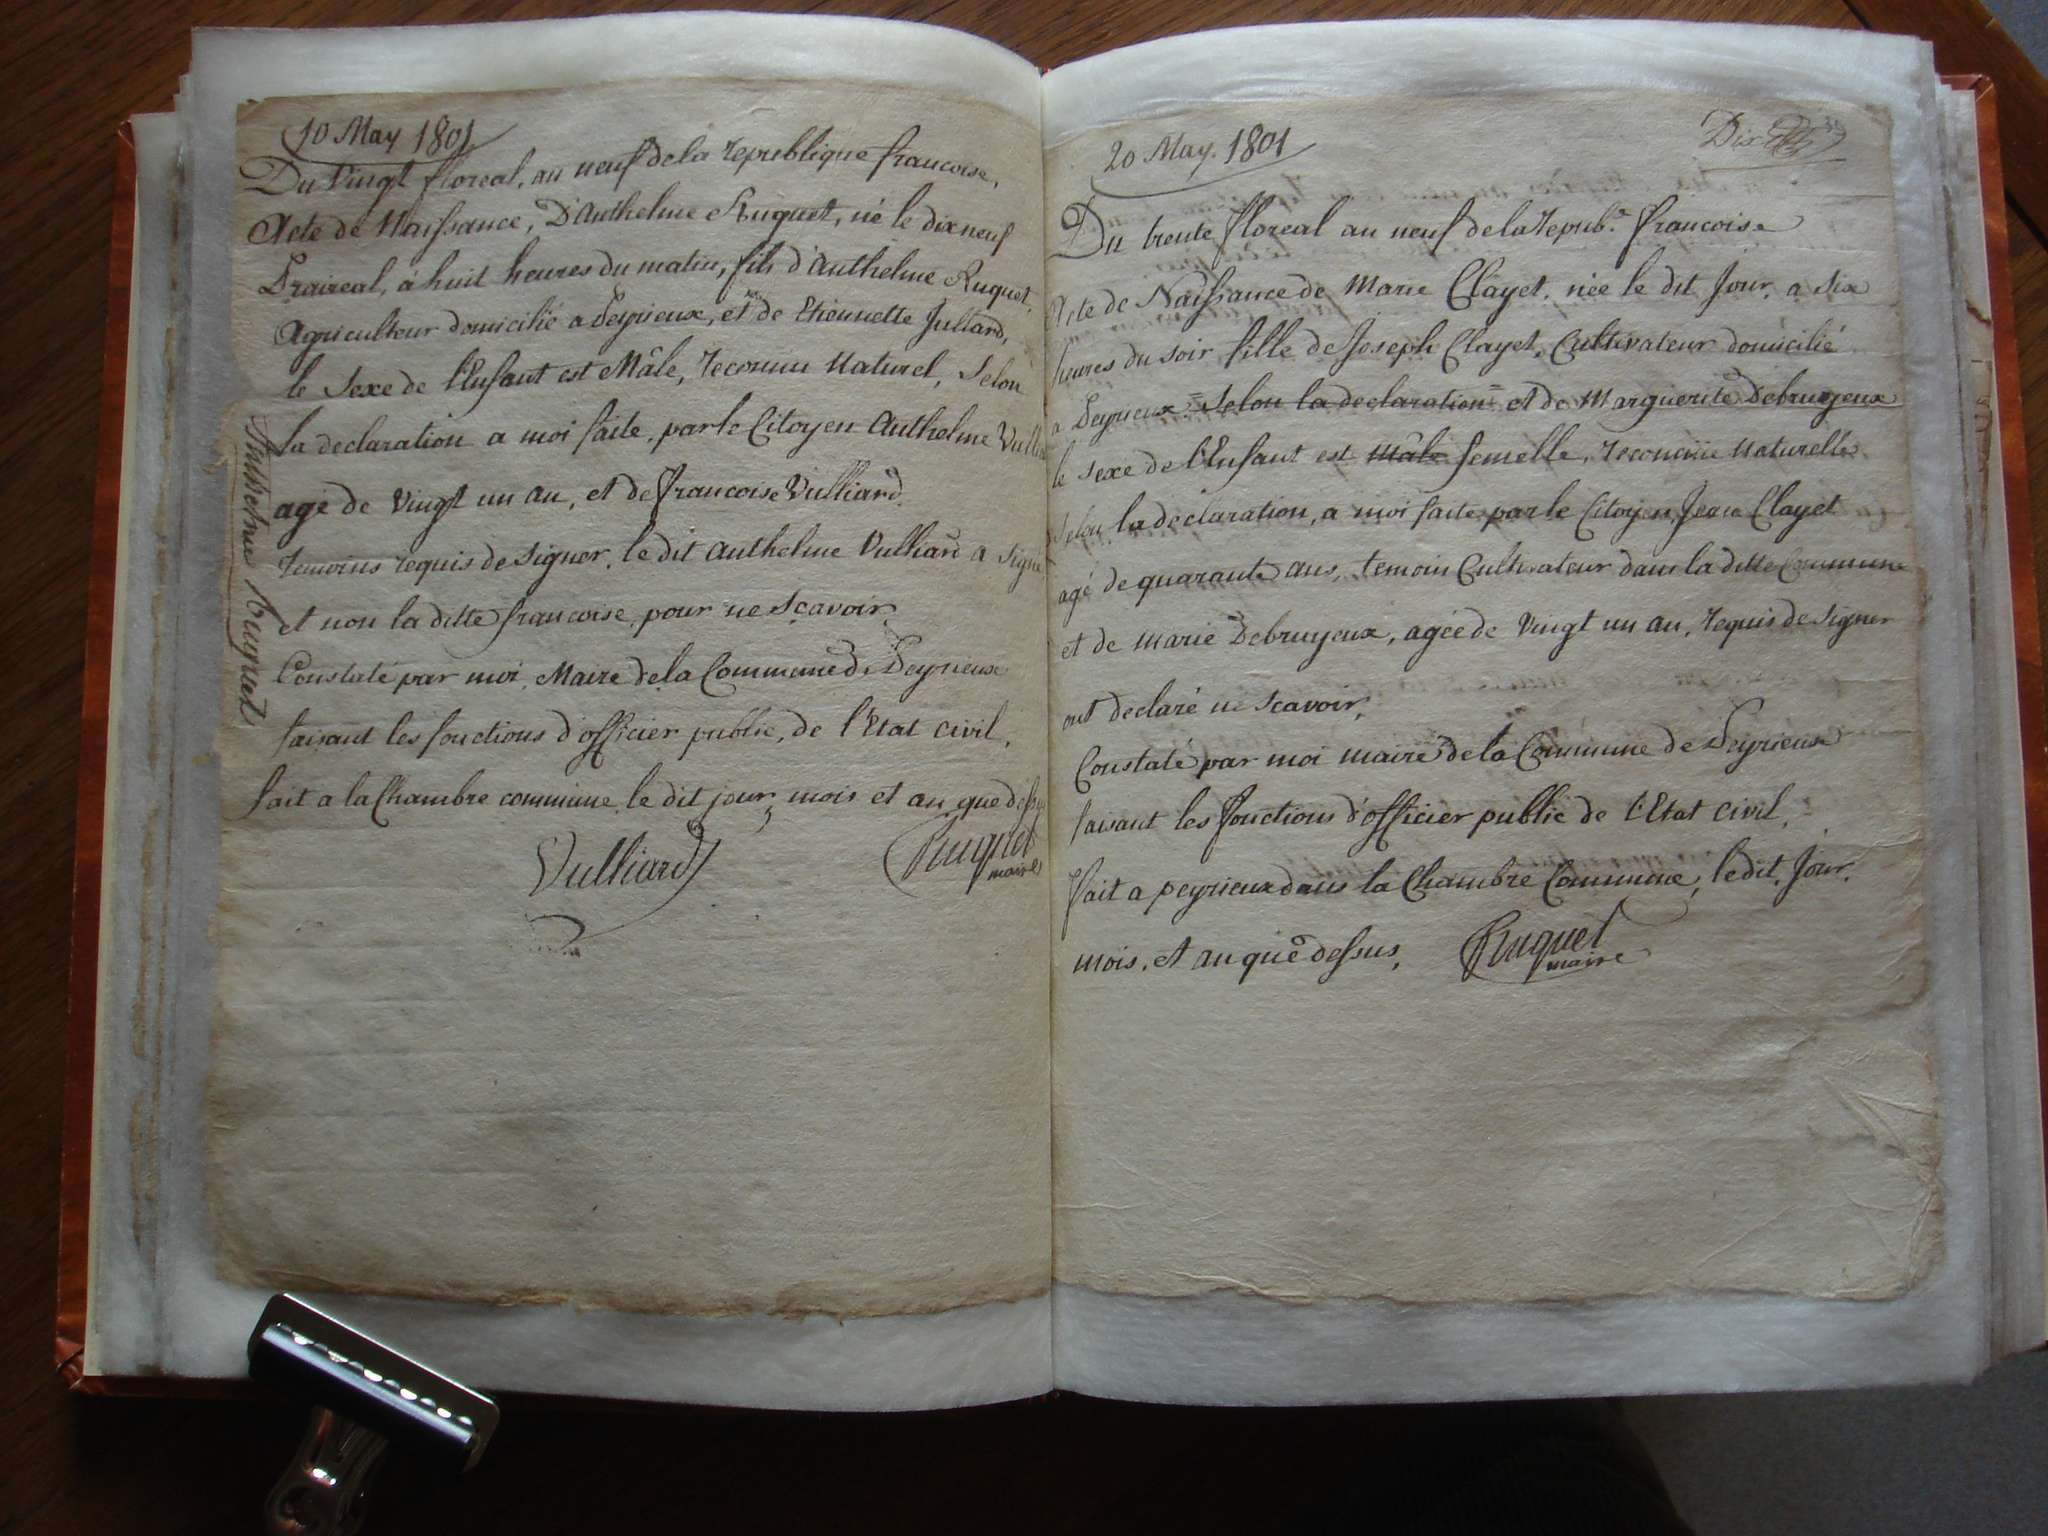 10 May 1801
Du Vingt floreal, an neuf de la republique francoise,
Acte de Naissance, D'Anthelme Ruguet, né le dix neuf
Praireal, á huit heures du matin, fils d'Anthelme Ruguet,
Agriculteur domicilié a Peyrieux, et de Etiennette Julliard,
le Sexe de l'Enfant est Mâle, reconnu Naturel, Selon
la declaration a moi faite, par le Citoyen Anthelme
agé de Vingt un an, et de francoise Vulliard
temoins requis de signer, le dit Anthelme Vulliard a signé
et non la ditte francoise, pour ne scavoir,
Constaté par moi Maire de la Commune de Peyrieux
faisant les fonctions d'officier public, de l'Etat civil,
fait a la Chambre commune le dit jour, mois et an que
Vulliard
Ruguet
maire
Anthelme Ruguet
20 May. 1801
Dix
Du trente floreal an neuf de la repub.e francoise
Acte de Naissance de Marie Clayet, née le dit Jour, a Six
heures du soir fille de Joseph Clayet, Cultivateur domicilié
a Peyrieux Selon la declaration et de Marguerite Debruyeux
le sexe de l'Enfant est Mâle femelle, reconnüe Naturelle
Selon la declaration, a moi faite par le Citoyen Jean Clayet
agé de quarante ans, temoin Cultivateur dans la ditte Commune
et de Marie Debruyeux, agée de Vingt un an, requis de signer
ont declaré ne scavoir,
Constaté par moi maire de la Commune de Peyrieux
faisant les fonctions d'officier public de l'Etat civil,
fait a peyrieux dans la Chambre Commune, le dit Jour,
mois, et an que dessus,
Ruguet
maire